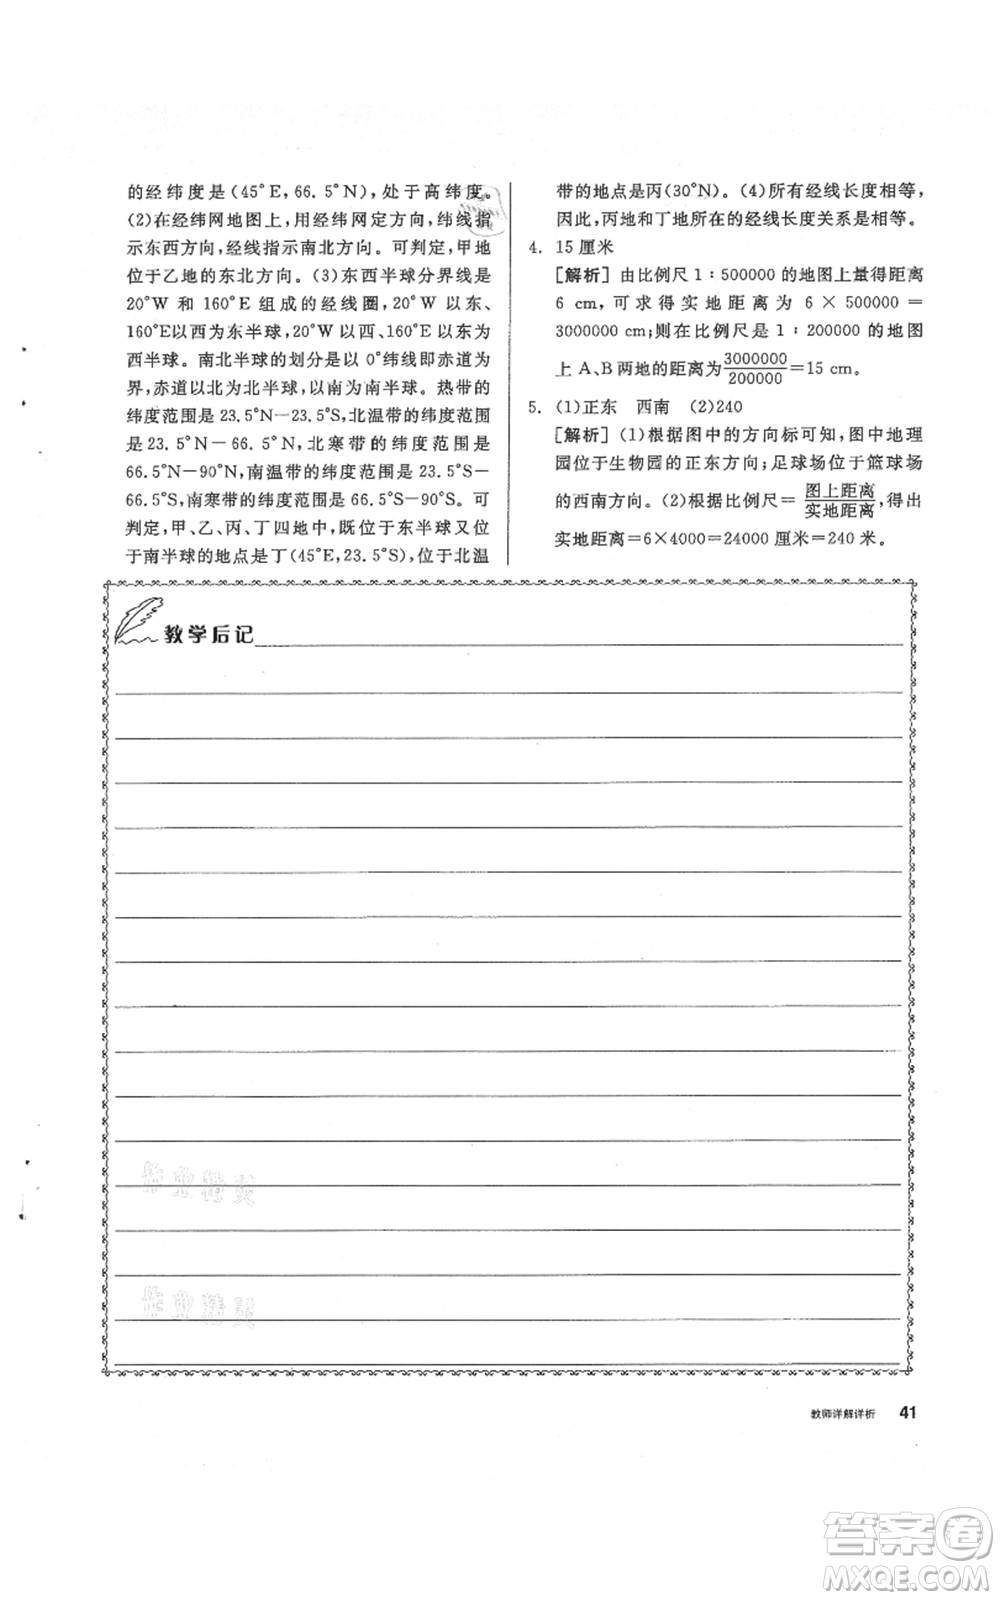 的经纬度是(45°E,66.5°N),处于高纬度。
(2)在经纬网地图上,用经纬网定方向,纬线指
示东西方向,经线指示南北方向。可判定,甲地
位于乙地的东北方向。(3)东西半球分界线是
20°W 和 160°E 组成的经线圈,20°W 以东、
160°E以西为东半球,20°W 以西、160°E以东为
西半球。南北半球的划分是以 0°纬线即赤道为
界,赤道以北为北半球,以南为南半球。热带的
纬度范围是 23.5°N－23.5°S,北温带的纬度范围
是 23.5°N－66.5°N,北寒带的纬度范围是
66.5°N－90°N,南温带的纬度范围是 23.5°S－
66.5°S,南寒带的纬度范围是 66.5°S－90°S。可
判定,甲、乙、丙、丁四地中,既位于东半球又位
于南半球的地点是丁(45°E,23.5°S),位于北温
带的地点是丙(30°N)。(4)所有经线长度相等,
因此,丙地和丁地所在的经线长度关系是相等。
4. 15 厘米
[解析] 由比例尺 1∶500000 的地图上量得距离
6 cm,可求得实地距离为 6×500000＝
3000000 cm;则在比例尺是 1∶200000 的地图
上 A、B两地的距离为3000000/200000＝15 cm。
5. (1)正东 西南 (2)240
[解析] (1)根据图中的方向标可知,图中地理
园位于生物园的正东方向;足球场位于篮球场
的西南方向。(2)根据比例尺＝图上距离/实地距离,得出
实地距离＝6×4000＝24000 厘米＝240 米。
教学后记
作业精灵
作业精灵
教师详解详析 41
答案卷
MXQE.COM